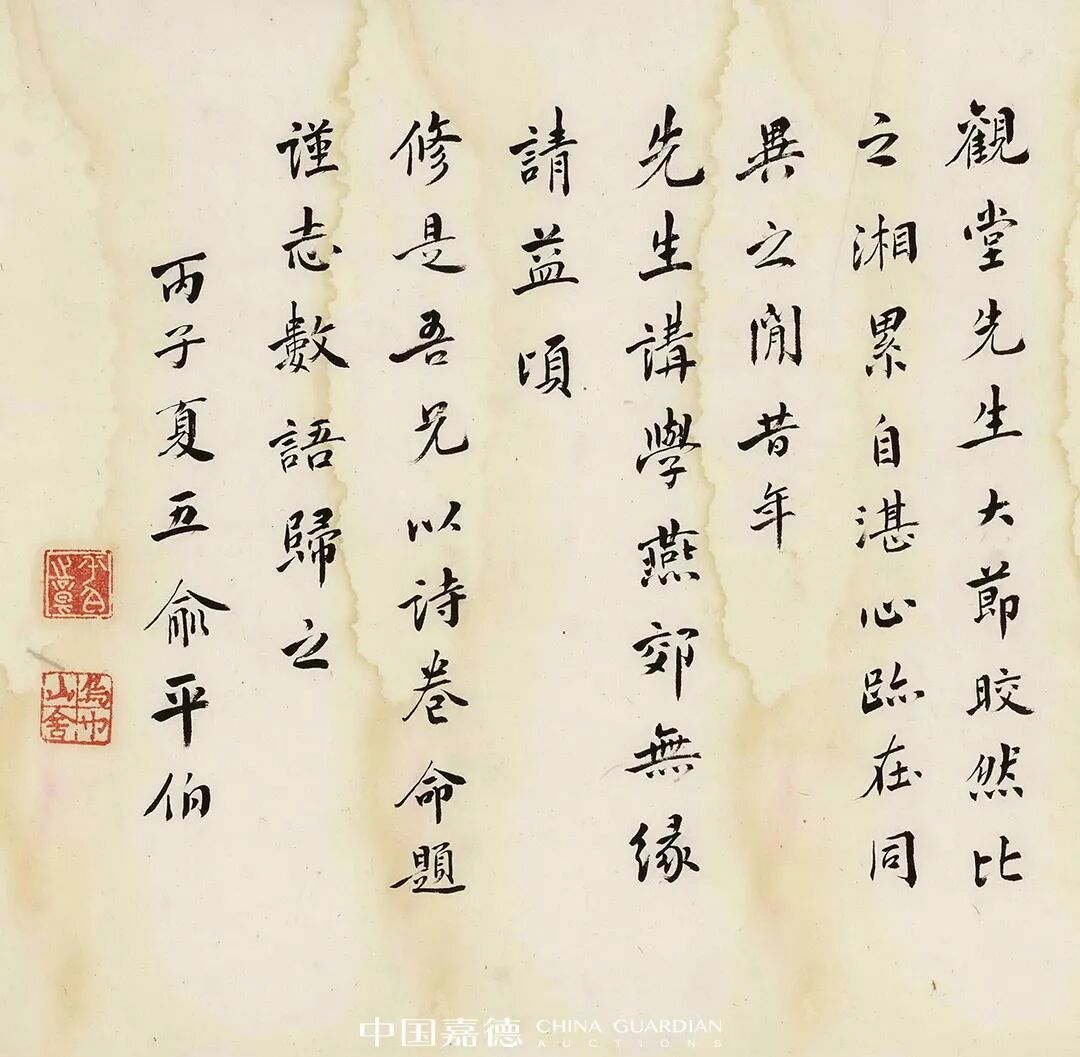 觀堂先生大節晈然比
之湘累自湛心跡在同
異之閒昔年
先生講學燕郊無緣
請益頃
修是吾兄以詩卷命題
謹志數語歸之
丙子夏五俞平伯
中国嘉德 CHINA GUARDIAN
AUCTIONS